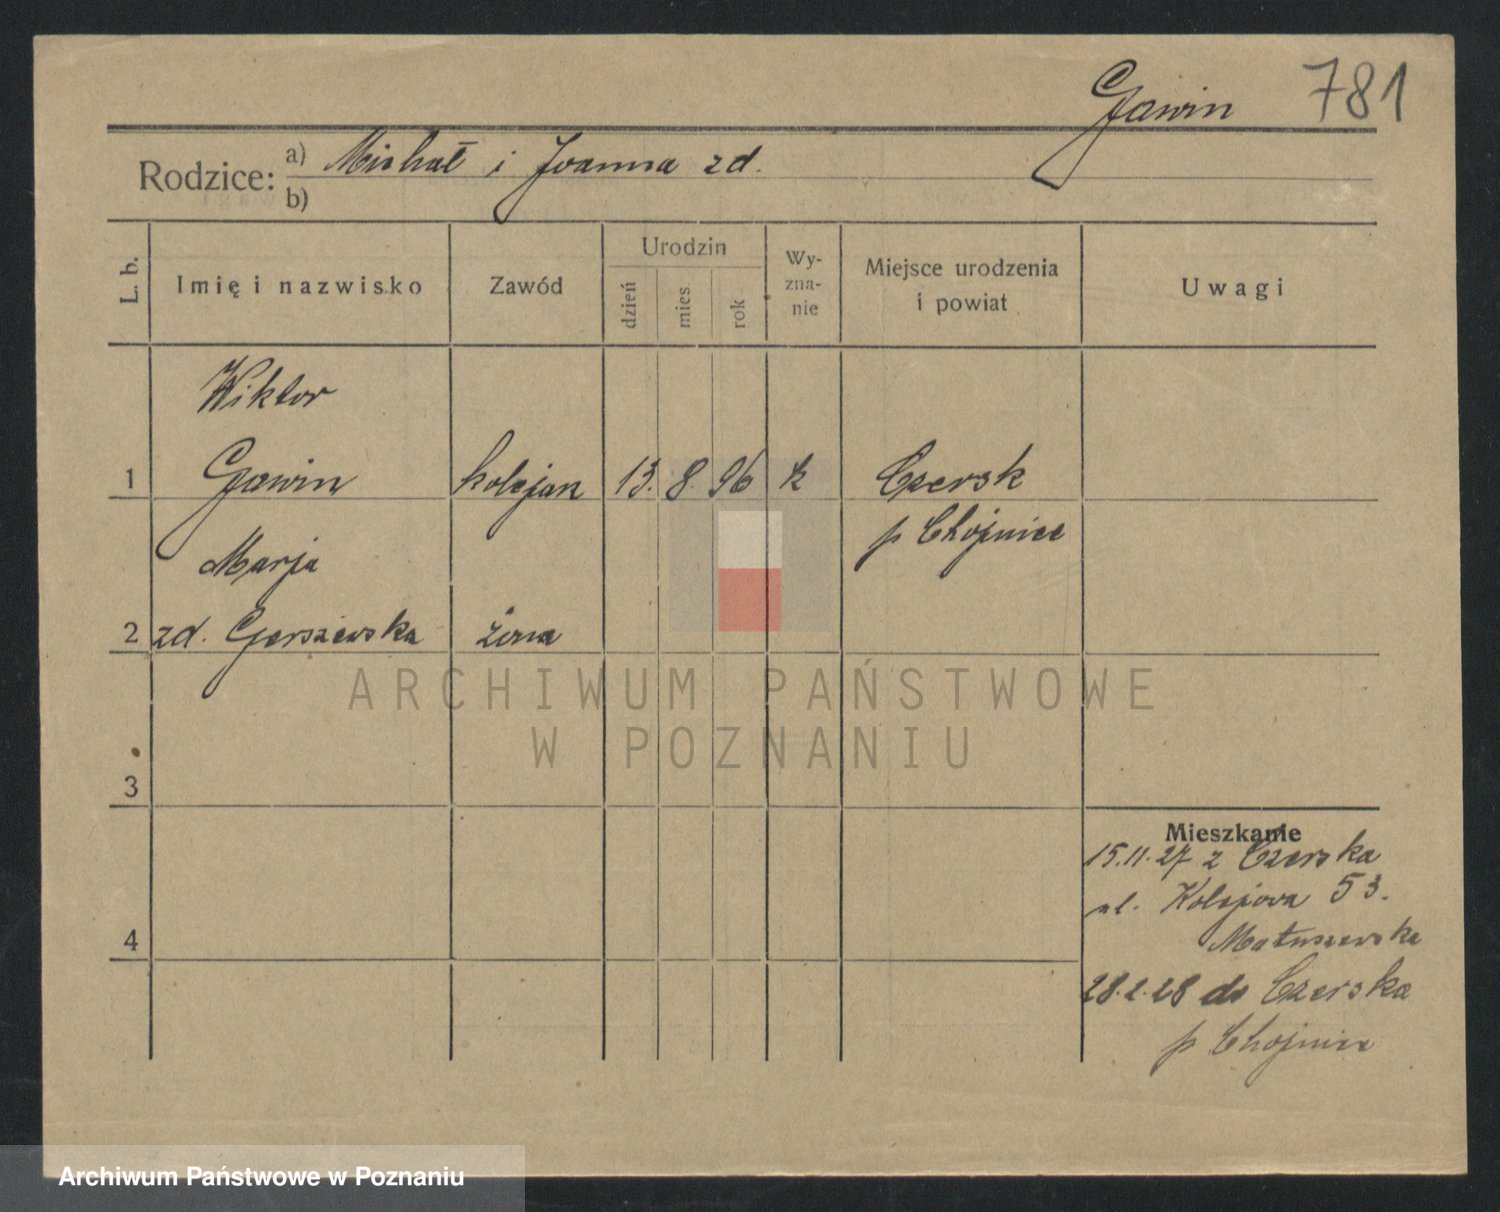 Gawin 781
Rodzice: a) Michał i Joanna zd.
b)
L. b.
Imię i nazwisko
Zawód
Urodzin
dzień
mies
rok
Wy-
zna-
nie
Miejsce urodzenia
i powiat
Uwagi
Wiktor
1 Gawin kolejarz 13. 8. 96 k Czersk
p Chojnice
Marja
2 zd. Gerszewska żona
3
4
Mieszkanie
15.11.27 z Czerska
ul. Kolejowa 53.
Matuszewska
28.2.28 do Czerska
p Chojnice
ARCHIWUM PAŃSTWOWE
W POZNANIU
Archiwum Państwowe w Poznaniu